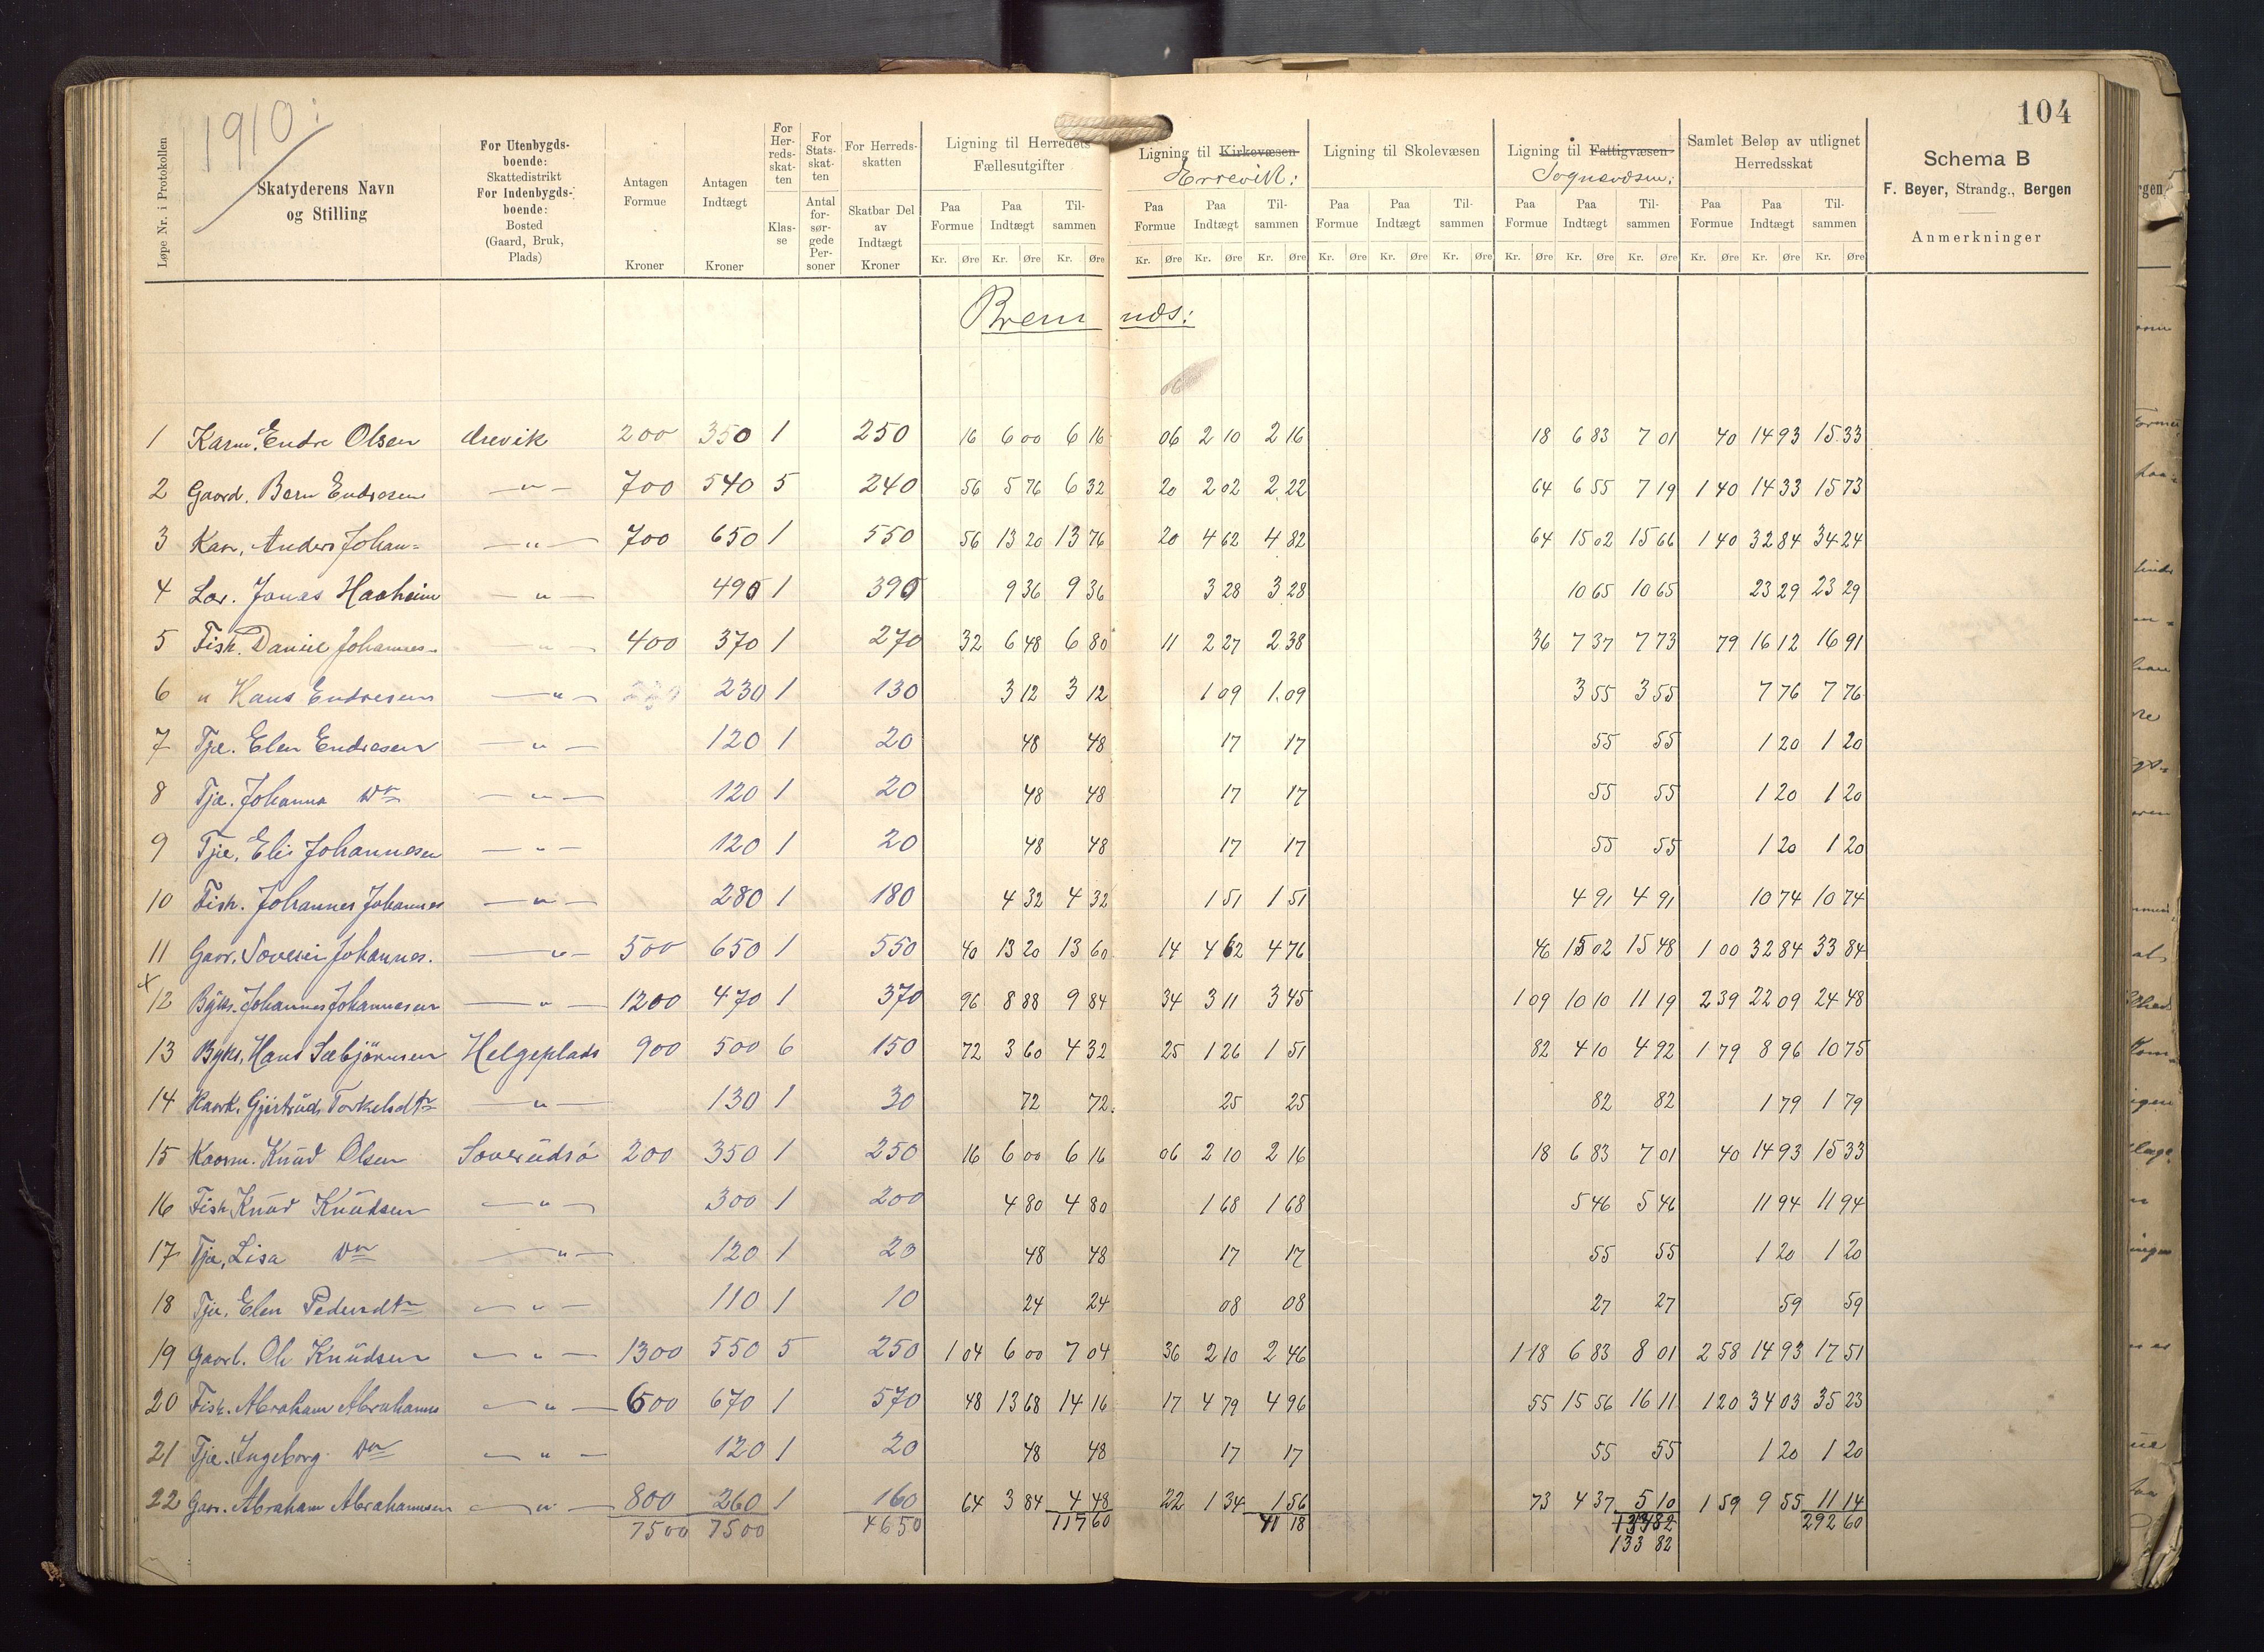 1910:
104
Løpe Nr. i Protokollen
Skatyderens Navn og Stilling
For Utenbygds-boende: Skattedistrikt For Indenbygds-boende: Bosted (Gaard, Bruk, Plads)
Antagen Formue Kroner
Antagen Indtægt Kroner
For Her-reds-skat-ten Klas-se
For Stats-skat-ten Antal for-sør-gede Per-soner
For Herreds-skatten Skatbar Del av Indtægt Kroner
Ligning til Herredets Fællesutgifter
Ligning til Kirkevæsen Errevik:
Ligning til Skolevæsen
Ligning til Fattigvæsen Sognevæsen:
Samlet Beløp av utlignet Herredsskat
Schema B
F. Beyer, Strandg., Bergen
Anmerkninger
Paa Formue Paa Indtægt Til-sammen Paa Formue Paa Indtægt Til-sammen Paa Formue Paa Indtægt Til-sammen Paa Formue Paa Indtægt Til-sammen Paa Formue Paa Indtægt Til-sammen
Kr. Øre Kr. Øre Kr. Øre Kr. Øre Kr. Øre Kr. Øre Kr. Øre Kr. Øre Kr. Øre Kr. Øre Kr. Øre Kr. Øre Kr. Øre Kr. Øre Kr. Øre
Bremnes:
1 Karm. Endre Olsen Ørevik 200 350 1 250 16 6 00 6 16 06 2 10 2 16 18 6 83 7 01 40 14 93 15 33
2 Gaard. Bern Endresen —"— 700 540 5 240 56 5 76 6 32 20 2 02 2 22 64 6 55 7 19 1 40 14 33 15 73
3 Kar. Anders Johan= —"— 700 650 1 550 56 13 20 13 76 20 4 62 4 82 64 15 02 15 66 1 40 32 84 34 24
4 Lær. Jonas Haaheim —"— 490 1 390 9 36 9 36 3 28 3 28 10 65 10 65 23 29 23 29
5 Fisk. Daniel Johannes. —"— 400 370 1 270 32 6 48 6 80 11 2 27 2 38 36 7 37 7 73 79 16 12 16 91
6 " Hans Endresen —"— 230 1 130 3 12 3 12 1 09 1.09 3 55 3 55 7 76 7 76
7 Tje. Elen Endresen —"— 120 1 20 48 48 17 17 55 55 1 20 1 20
8 Tje. Johanna do —"— 120 1 20 48 48 17 17 55 55 1 20 1 20
9 Tje. Elis Johannesen —"— 120 1 20 48 48 17 17 55 55 1 20 1 20
10 Fisk. Johannes Johannes —"— 280 1 180 4 32 4 32 1 51 1 51 4 91 4 91 10 74 10 74
11 Gaar. Soverin Johannes. —"— 500 650 1 550 40 13 20 13 60 14 4 62 4 76 46 15 02 15 48 1 00 32 84 33 84
x 12 Bÿks. Johannes Johannesen —"— 1200 470 1 370 96 8 88 9 84 34 3 11 3 45 1 09 10 10 11 19 2 39 22 09 24 48
13 Byks. Hans Sæbjörnsen Helgeplads 900 500 6 150 72 3 60 4 32 25 1 26 1 51 82 4 10 4 92 1 79 8 96 10 75
14 Gjertrud Torkelsdtr —"— 130 1 30 72 72 25 25 82 82 1 79 1 79
15 Kaarm. Knud Olsen 200 350 1 250 16 6 00 6 16 06 2 10 2 16 18 6 83 7 01 40 14 93 15 33
16 Fisk Knud Knudsen —"— 300 1 200 4 80 4 80 1 68 1 68 5 46 5 46 11 94 11 94
17 Tje. Lisa do —"— 120 1 20 48 48 17 17 55 55 1 20 1 20
18 Tje. Elen Pedersdtr —"— 110 1 10 24 24 08 08 27 27 59 59
19 Gaarb. Ole Knudsen —"— 1300 550 5 250 1 04 6 00 7 04 36 2 10 2 46 1 18 6 83 8 01 2 58 14 93 17 51
20 Fisk. Abraham Abrahams —"— 600 670 1 570 48 13 68 14 16 17 4 79 4 96 55 15 56 16 11 1 20 34 03 35 23
21 Tje. Ingeborg do —"— 120 1 20 48 48 17 17 55 55 1 20 1 20
22 Gaar. Abraham Abrahamsen —"— 800 260 1 160 64 3 84 4 48 22 1 34 1 56 73 4 37 5 10 1 59 9 55 11 14
7500 7500 4650 117 60 41 18 292 60
133 82